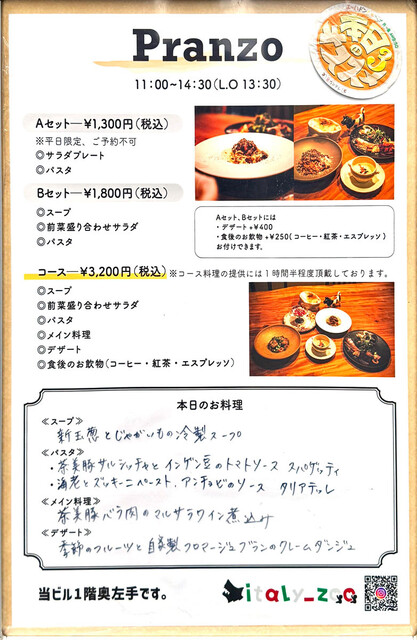 Pranzo
11:00~14:30(L.O 13:30)
Aセット―¥1,300円(税込)
※平日限定、ご予約不可
◎サラダプレート
◎パスタ
Bセット―¥1,800円(税込)
◎スープ
◎前菜盛り合わせサラダ
◎パスタ
Aセット、Bセットには
・デザート+¥400
・食後のお飲物+¥250(コーヒー・紅茶・エスプレッソ)
お付けできます。
コース―¥3,200円(税込) ※コース料理の提供には1時間半程度頂戴しております。
◎スープ
◎前菜盛り合わせサラダ
◎パスタ
◎メイン料理
◎デザート
◎食後のお飲物(コーヒー・紅茶・エスプレッソ)
本日のお料理
≪スープ≫
新玉葱とじゃがいもの冷製スープ
≪パスタ≫
・茶美豚サルシッチャとインゲン豆のトマトソース スパゲッティ
・海老とズッキーニペースト、アンチョビのソース タリアテッレ
≪メイン料理≫
茶美豚バラ肉のマルサラワイン煮込み
≪デザート≫
季節のフルーツと自家製フロマージュブランのクレームダンジュ
当ビル1階奥左手です。
italy_zoo